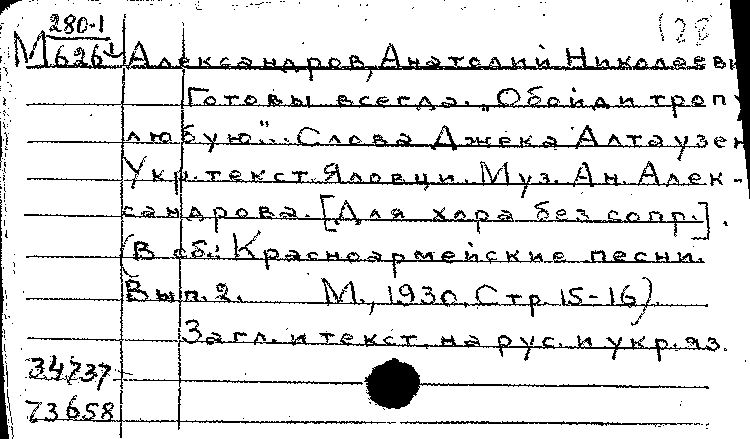 280-1
М 626
128
Александров, Анатолий Николаеви
Готовы всегда. „Обойди тропу
любую“... Слова Джека Алтаузен
Укр. текст Яловци. Муз. Ан. Алек-
сандрова. [Для хора без сопр.].
(В сб.: Красноармейские песни.
Вып. 2. М., 1930, Стр. 15-16).
Загл. и текст на рус. и укр. яз.
34737
73658